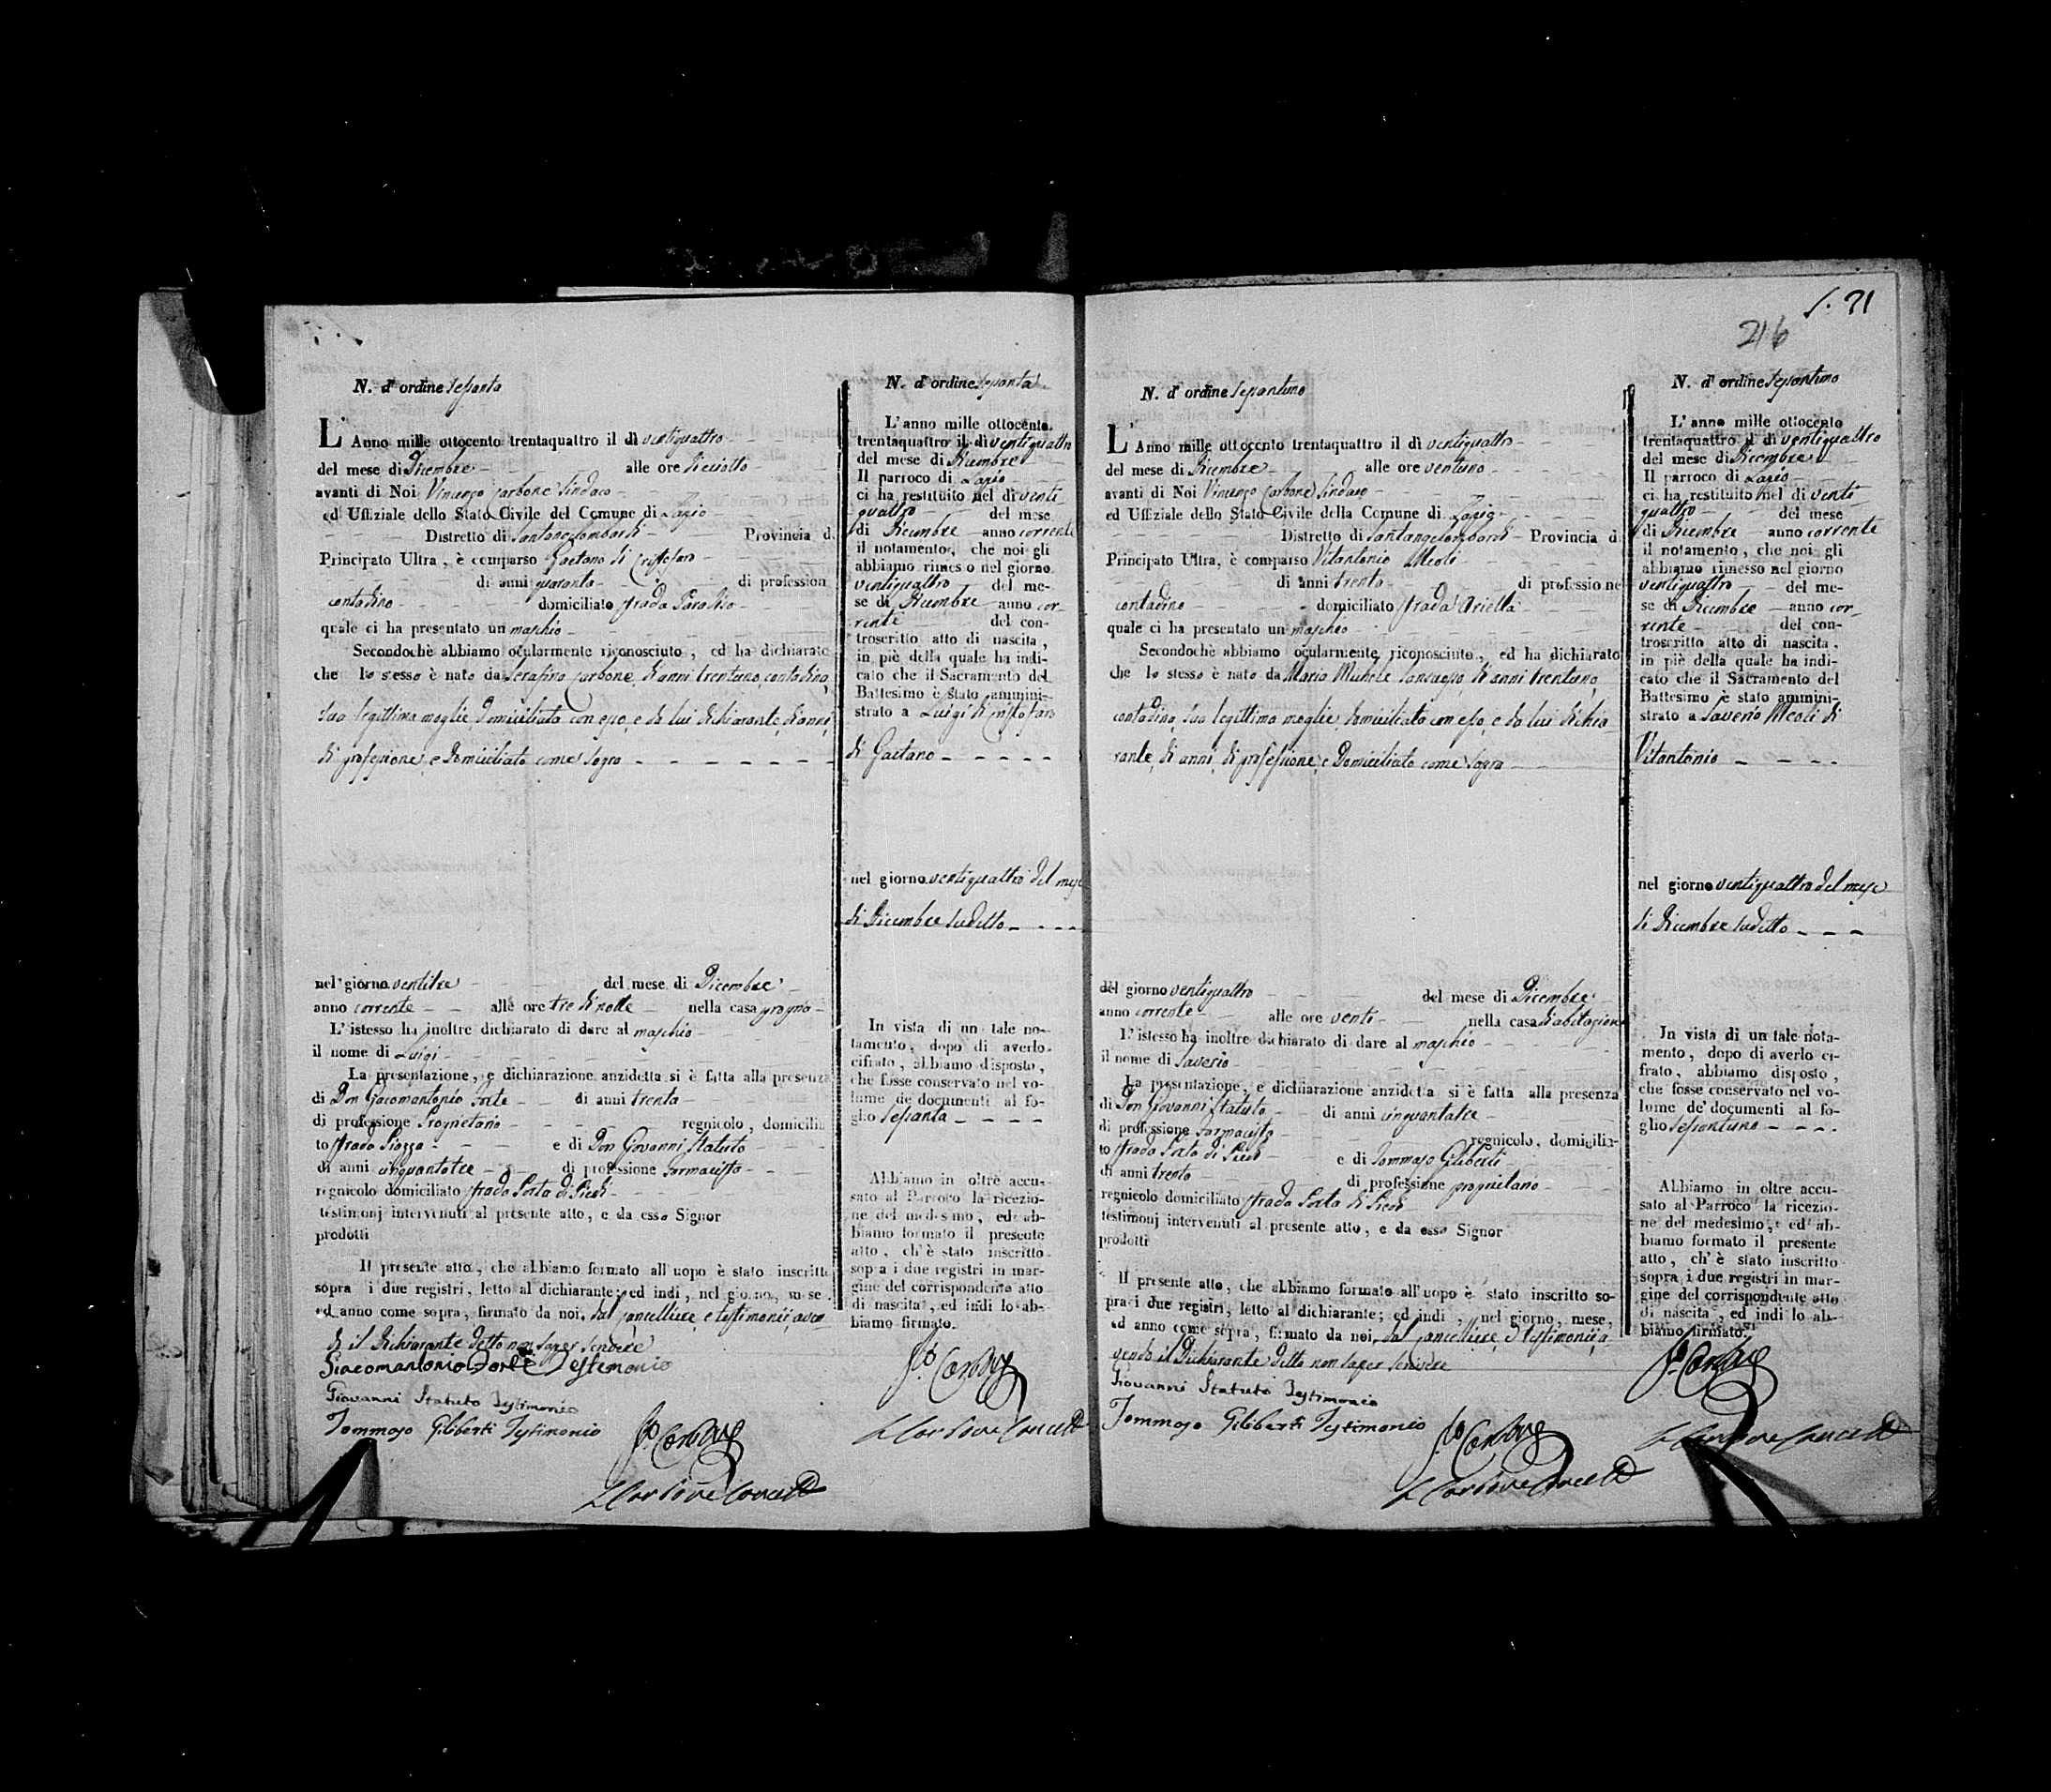 N. d'ordine Sessanta
L'Anno mille ottocento trentaquattro il dì ventiquattro
del mese di Dicembre alle ore diciotto
avanti di Noi Vincenzo Carbone Sindaco
ed Uffiziale dello Stato Civile del Comune di
Distretto di Santangelombardi Provincia d.
Principato Ultra, è comparso Gaetano di Cristofaro
di anni quaranta di profession
contadino domiciliato strada Paradiso
quale ci ha presentato un maschio
Secondochè abbiamo ocularmente riconosciuto, ed ha dichiarato
che lo stesso è nato da Serafina Carbone, di anni trentuno, contadina,
sua legittima moglie, domiciliata con esso, e da lui dichiarante, di anni,
di professione, e domiciliato come sopra
nel giorno ventitre del mese di Dicembre
anno corrente alle ore tre di notte nella casa propria
L'istesso ha inoltre dichiarato di dare al maschio
il nome di Luigi
La presentazione, e dichiarazione anzidetta si è fatta alla presenza
di Don Giacomantonio Forte di anni trenta
di professione Proprietario regnicolo, domicilia
to strada Piazza e di Don Giovanni Statuto
di anni cinquantatre di professione Farmacista
regnicolo domiciliato strada Porta di Piedi
testimonj intervenuti al presente atto, e da esso Signor
prodotti
Il presente atto, che abbiamo formato all'uopo è stato inscritto
sopra i due registri, letto al dichiarante; ed indi, nel giorno, mese
ed anno come sopra, firmato da noi, dal Cancelliere, e testimonii, aven
do il dichiarante detto non saper scrivere
Giacomantonio Forte Testimonio
Giovanni Statuto Testimonio
Tommaso Giliberti Testimonio
N. d'ordine Sessanta
L'anno mille ottocento
trentaquattro il dì ventiquattro
del mese di Dicembre
Il parroco di
ci ha restituito nel dì venti
quattro del mese
di Dicembre anno corrente
il notamento, che noi gli
abbiamo rimesso nel giorno
ventiquattro del me-
se di Dicembre anno cor-
rente del con-
troscritto atto di nascita,
in piè della quale ha indi-
cato che il Sacramento del
Battesimo è stato ammini-
strato a Luigi di Cristofaro
di Gaetano
nel giorno ventiquattro del mese
di Dicembre sudetto
In vista di un tale no-
tamento, dopo di averlo
cifrato, abbiamo disposto,
che fosse conservato nel vo-
lume de' documenti al fo-
glio Sessanta
Abbiamo in oltre accu-
sato al Parroco la ricezio-
ne del medesimo, ed ab-
biamo formato il presente
atto, ch'è stato inscritto
sopra i due registri in mar-
gine del corrispondente atto
di nascita, ed indi lo ab-
biamo firmato.
f. 71
216
N. d'ordine Sessantuno
L'Anno mille ottocento trentaquattro il dì ventiquattro
del mese di Dicembre alle ore ventuno
avanti di Noi Vincenzo Carbone Sindaco
ed Uffiziale dello Stato Civile della Comune di
Distretto di Santangelombardi Provincia d.
Principato Ultra, è comparso Vitantonio Meoli
di anni trenta di professione
contadino domiciliato strada Ariella
quale ci ha presentato un maschio
Secondochè abbiamo ocularmente riconosciuto, ed ha dichiarato
che lo stesso è nato da Maria Michele di anni trentuno,
contadina, sua legittima moglie, domiciliata con esso, e da lui dichia
rante, di anni, di professione, e domiciliato come sopra
del giorno ventiquattro del mese di Dicembre
anno corrente alle ore venti nella casa d'abitazione
L'istesso ha inoltre dichiarato di dare al maschio
il nome di Saverio
La presentazione, e dichiarazione anzidetta si è fatta alla presenza
di Don Giovanni Statuto di anni cinquantatre
di professione Farmacista regnicolo, domicilia-
to strada Porta di Piedi e di Tommaso Giliberti
di anni trenta di professione proprietario
regnicolo domiciliato strada Porta di Piedi
testimonj intervenuti al presente atto, e da esso Signor
prodotti
Il presente atto, che abbiamo formato all'uopo è stato inscritto so-
pra i due registri, letto al dichiarante; ed indi, nel giorno, mese,
ed anno come sopra, firmato da noi, dal Cancelliere, e testimonii, a
vendo il dichiarante detto non saper scrivere
Giovanni Statuto Testimonio
Tommaso Giliberti Testimonio
N. d'ordine Sessantuno
L'anno mille ottocento
trentaquattro il dì ventiquattro
del mese di Dicembre
Il parroco di
ci ha restituito nel dì venti
quattro del mese
di Dicembre anno corrente
il notamento, che noi gli
abbiamo rimesso nel giorno
ventiquattro del me-
se di Dicembre anno cor-
rente del con-
troscritto atto di nascita,
in piè della quale ha indi-
cato che il Sacramento del
Battesimo è stato ammini-
strato a Saverio Meoli di
Vitantonio
nel giorno ventiquattro del mese
di Dicembre sudetto
In vista di un tale nota-
mento, dopo di averlo ci-
frato, abbiamo disposto,
che fosse conservato nel vo-
lume de' documenti al fo-
glio Sessantuno
Abbiamo in oltre accu-
sato al Parroco la ricezio-
ne del medesimo, ed ab-
biamo formato il presente
atto, ch'è stato inscritto
sopra i due registri in mar-
gine del corrispondente atto
di nascita, ed indi lo ab-
biamo firmato.